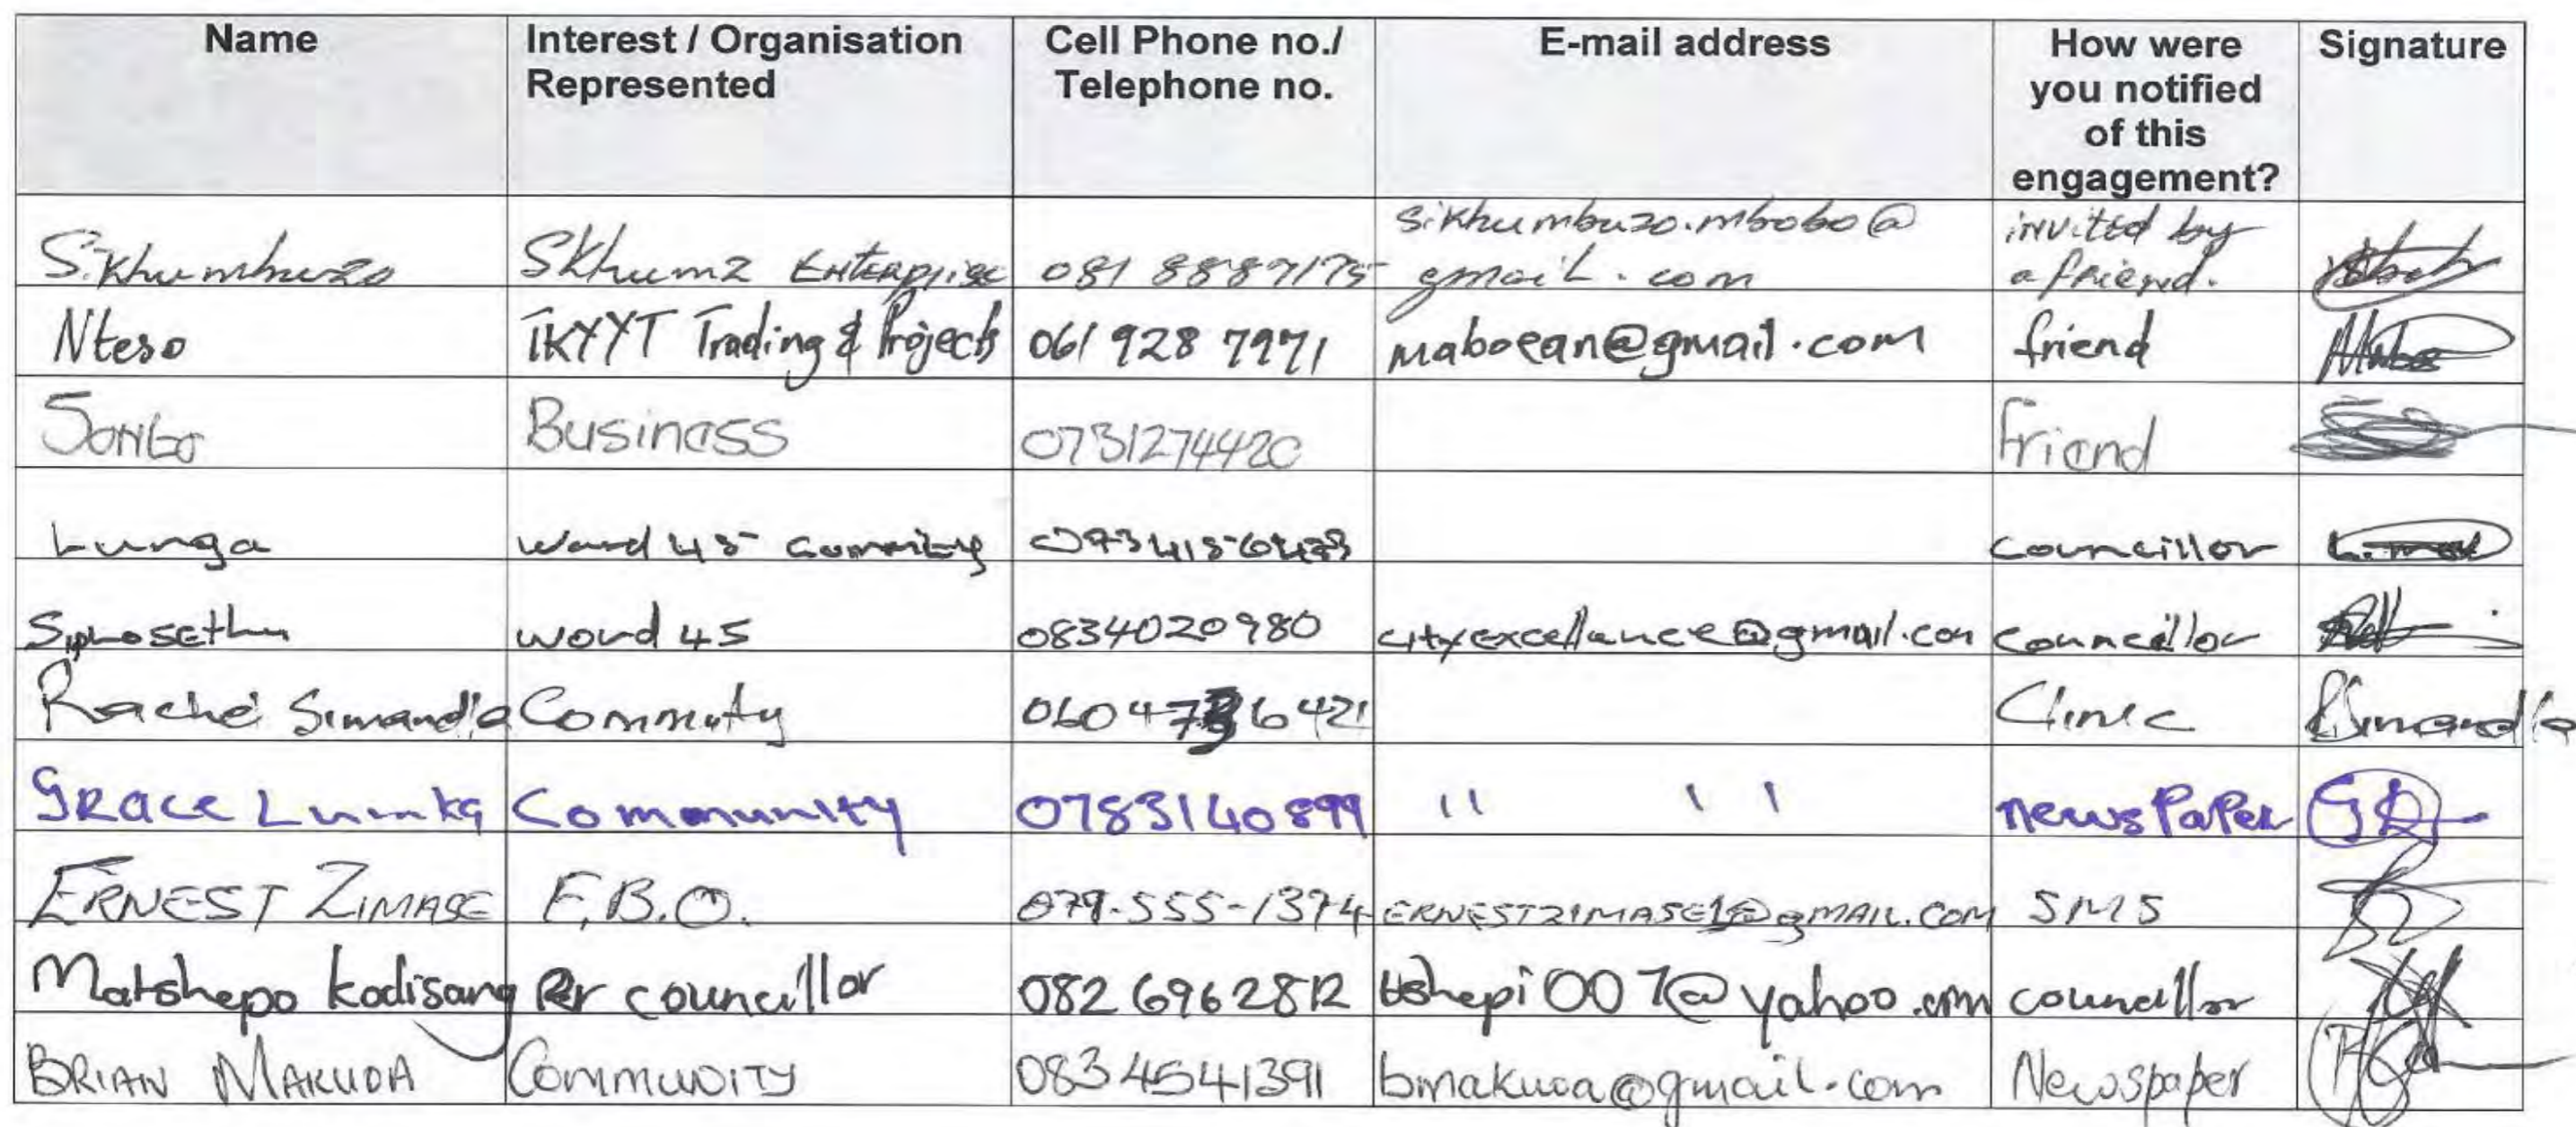 Name Interest / Organisation Represented Cell Phone no./ Telephone no. E-mail address How were you notified of this engagement? Signature
Sikhumbuzo SKhumz Enterprise 081 8887175 sikhumbuzo.mbobo@gmail.com invited by a friend.
Nteso TKYYT Trading & Projects 061 928 7971 maboean@gmail.com friend
Songo Business 0731274420 friend
Lunga ward 45 councillor
Siphosethu word 45 0834020980 cityexcellance@gmail.com councillor
Rache Simandla Commuty Clinic
GRace Lumka Community 0783140899 " " newspaper
ERNEST ZIMASE F.B.O. 079-555-1374 ERNESTZIMASE1@gMAIL.COM SMS
Matshepo Kodisang Pr councillor 082 696 2812 tshepi007@yahoo.com councillor
BRIAN MAKUDA COMMUNITY 083 4541391 bmakuda@gmail.com Newspaper